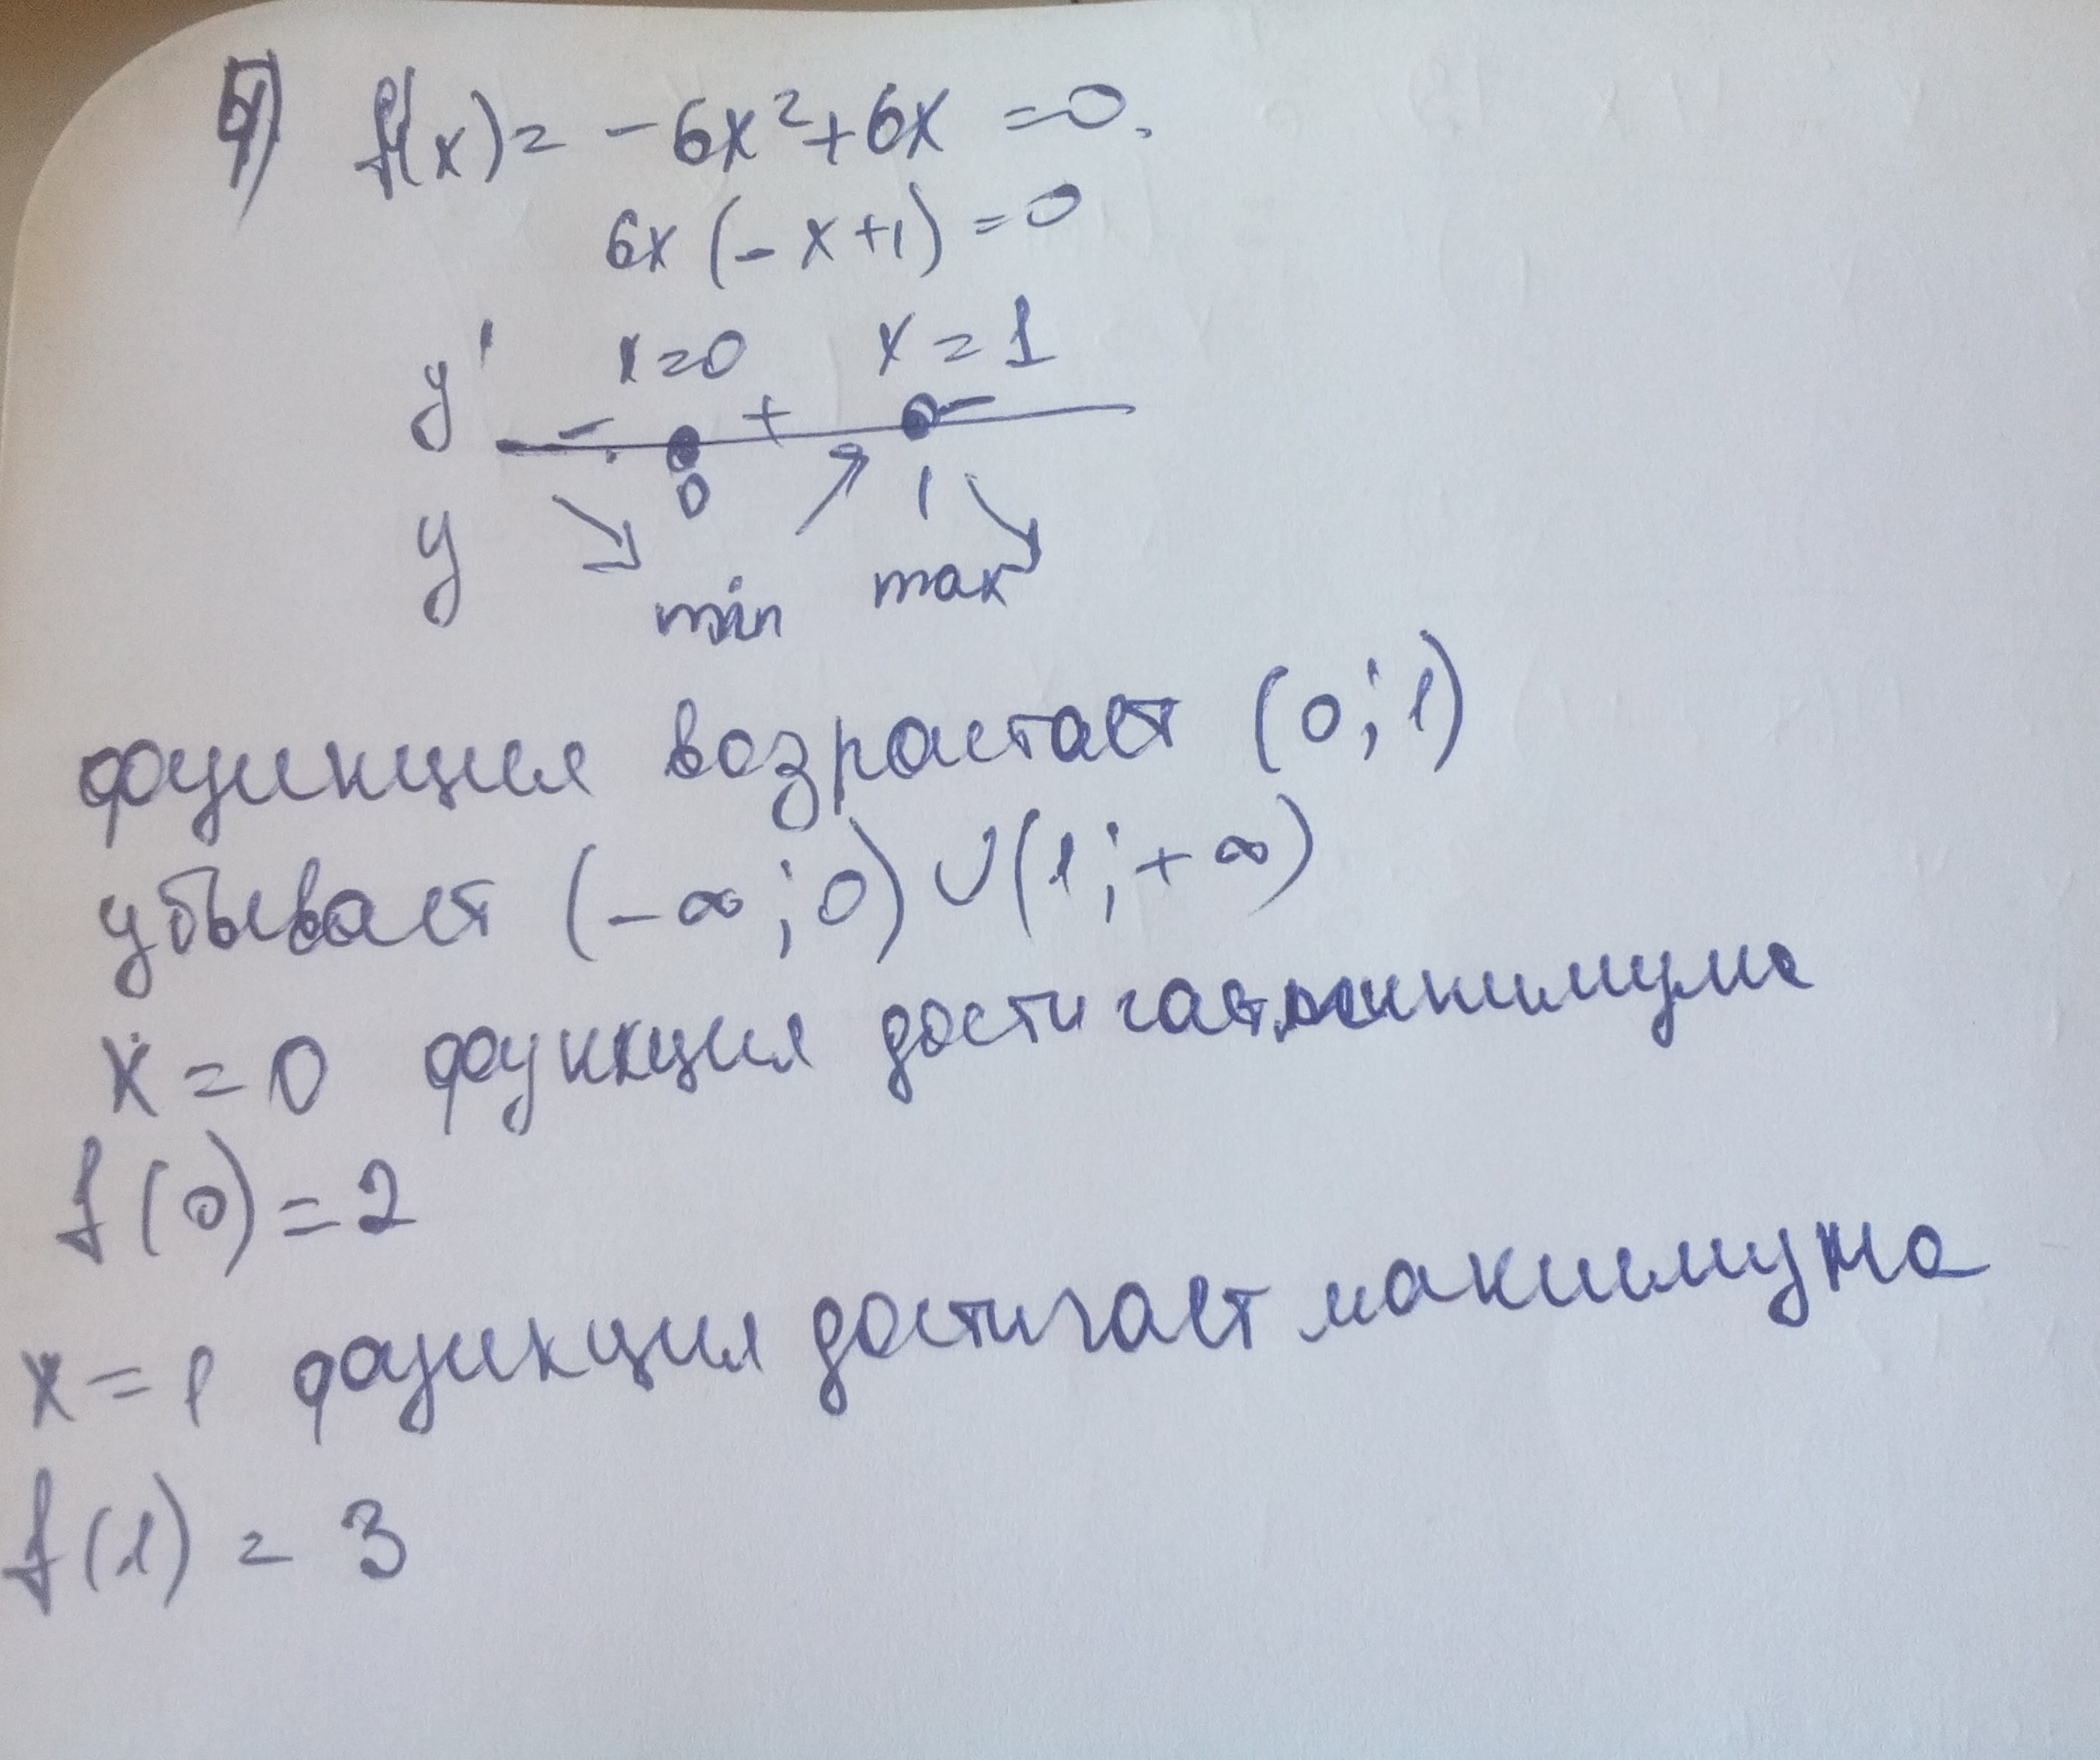 4) f'(x) = -6x²+6x =0.
6x (-x+1) =0
y' x=0 x=1
- + -
0 1
y min max
функция возрастает (0;1)
убывает (-∞;0)∪(1;+∞)
x=0 функция достигает минимума
f(0)=2
x=1 функция достигает максимума
f(1)=3